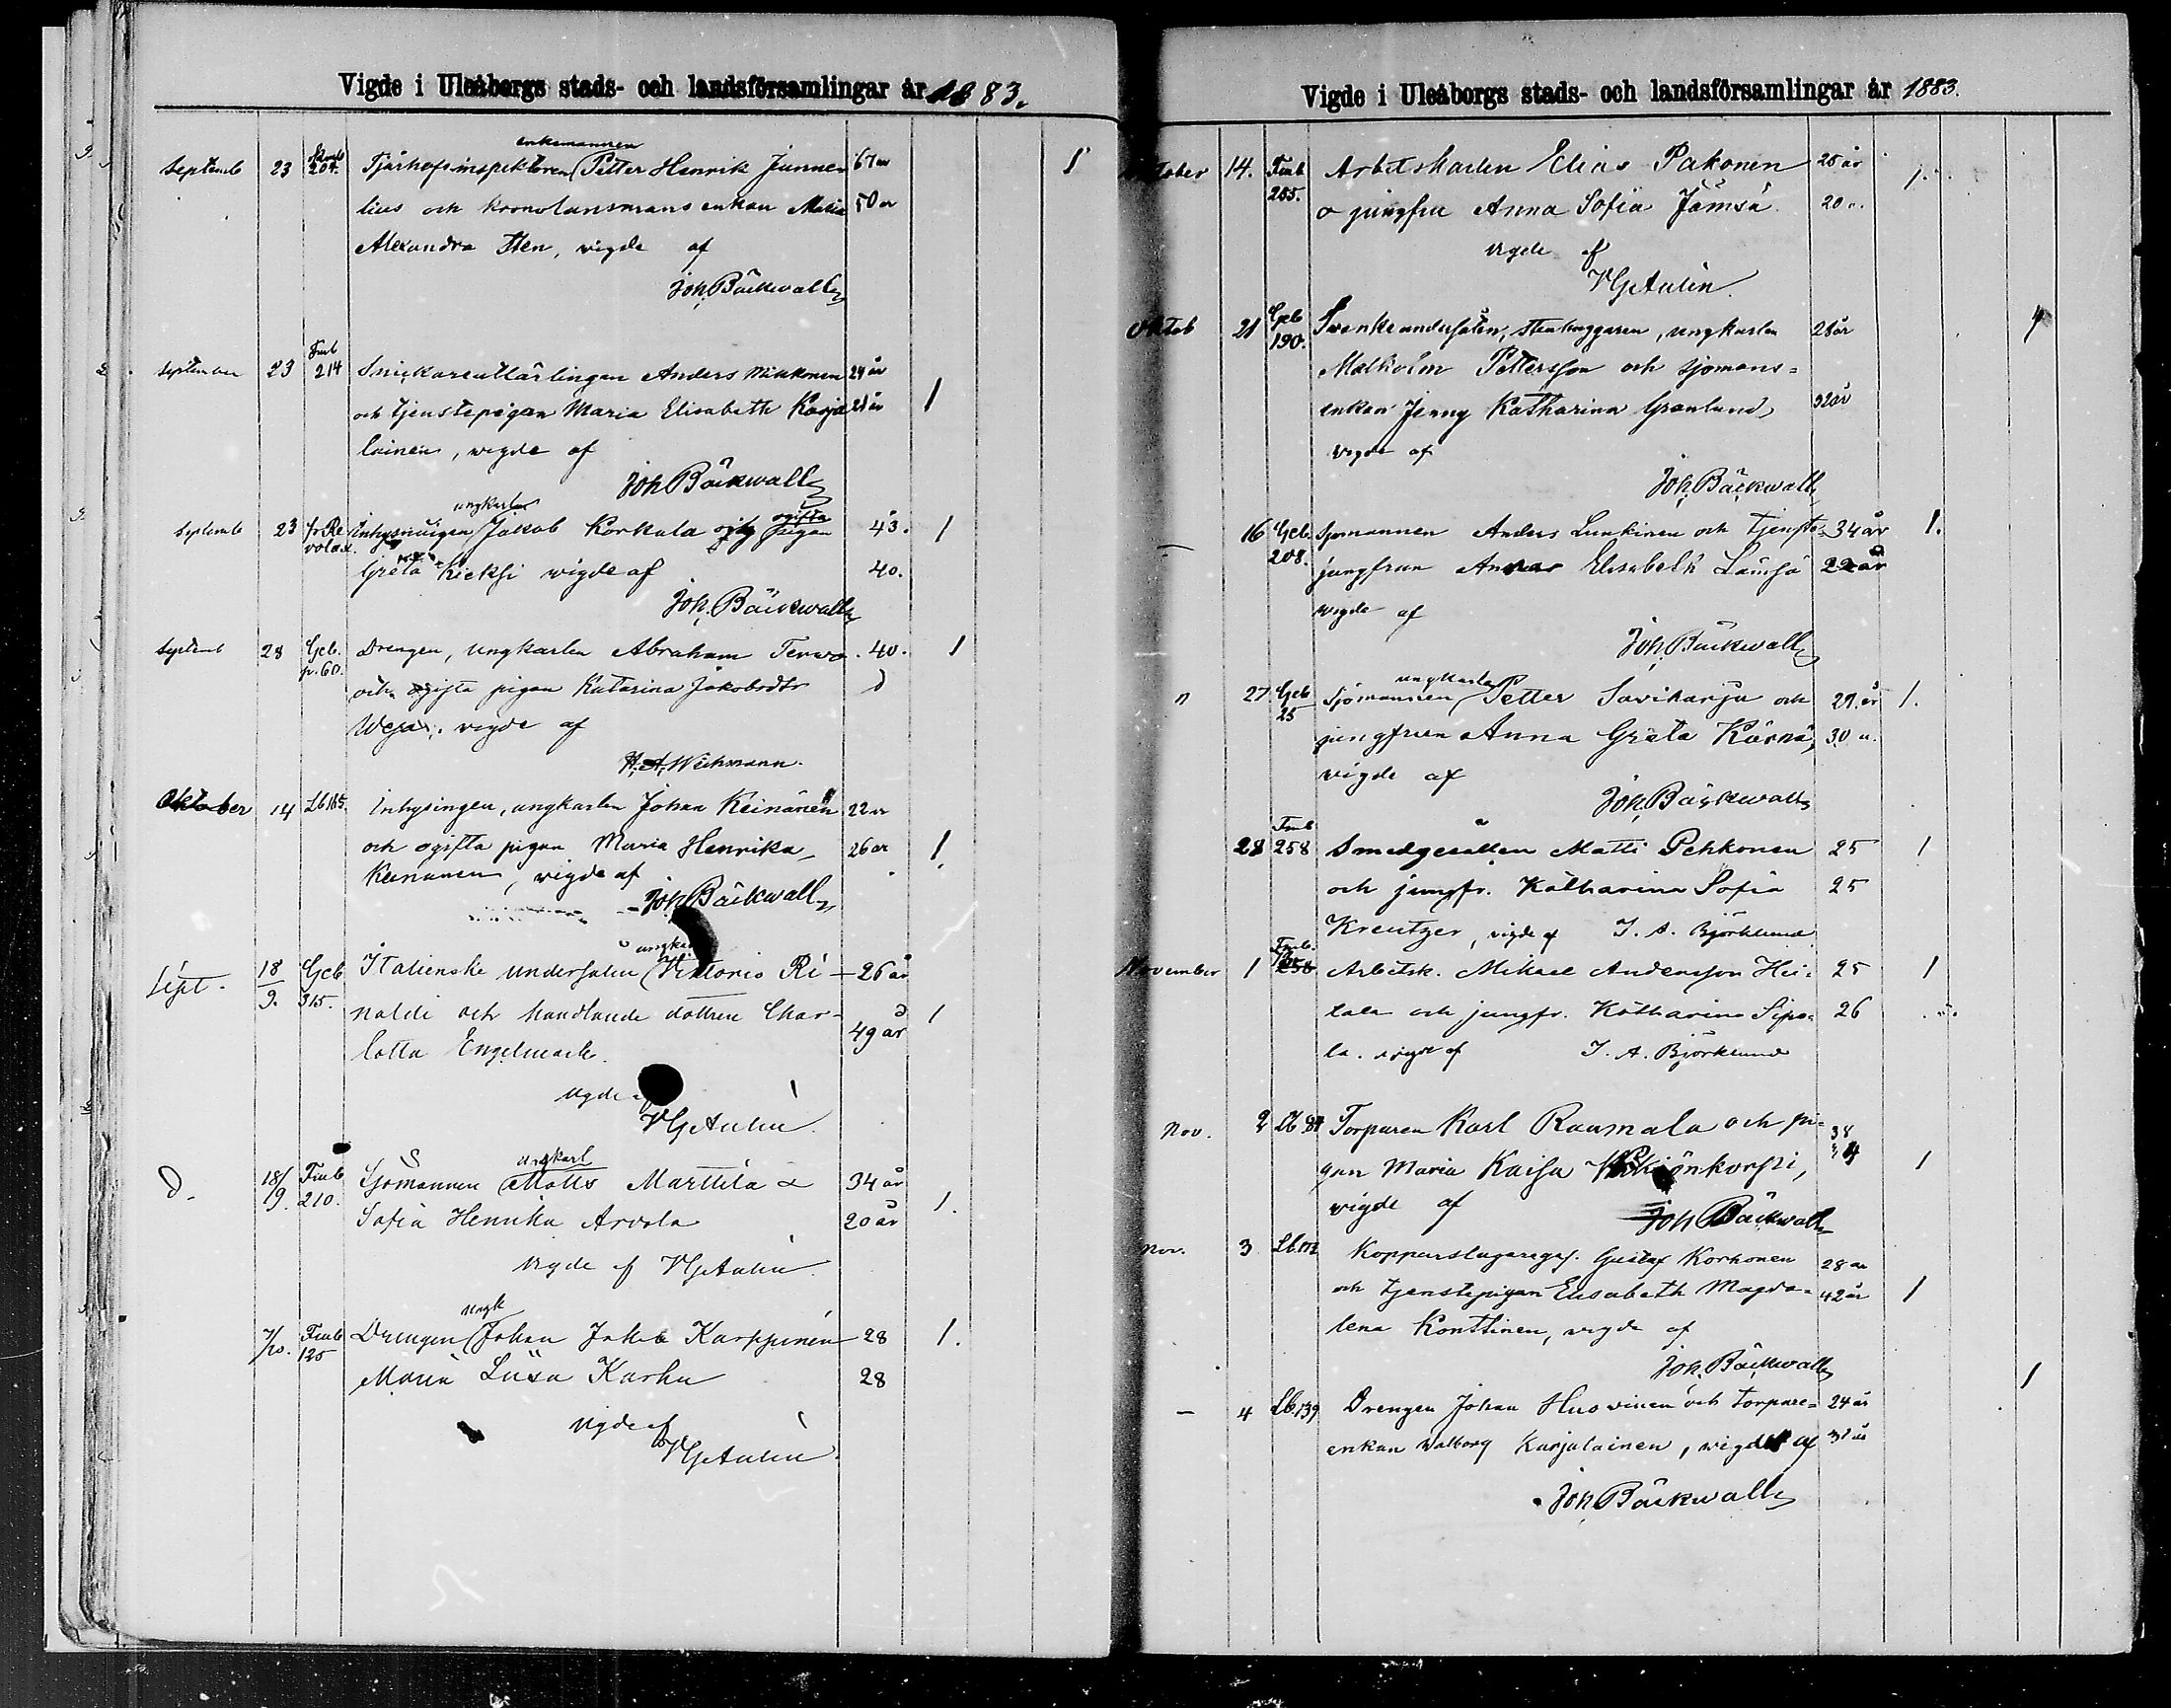 Vigde i Uleåborgs stads- och landsförsamlingar år 1883.
enkemannen
Septemb 23 204. Tjärhofsinspektoren Petter Henrik Junne- 67 år 1
lius och kronolänsmans enkan Maria 50 år
Alexandra Sten, vigde af
Joh. Bäckwall
September 23 Fmb 214 Snickareutlärlingen Anders Mikkonen 24 år
och tjenstepigan Maria Elisabeth Karja 21 år 1
lainen, vigde af
Joh Bäckwall
ungkarlen ogifta
Septemb 23 fr. Re Inhysningen Jakob Korkala och pigan 43. 1
volax.
Greta Kieksi vigde af 40.
Joh. Bäckwall
Septemb 28 Gcb. Drengen, ungkarlen Abraham Terwo 40. 1
p. 60.
och ogifta pigan Katarina Jakobsdtr
Weja. vigde af
H. A. Wichmann.
Oktober 14 Lb 165. Inhysingen, ungkarlen Johan Keinänen 22 år
och ogifta pigan Maria Henrika 26 år 1.
Keinänen, vigde af
Joh Bäckwall
ungkarl
Sept. 18/9. Gcb 315. Italienske undersåten Vittorio Ri- 26 år
naldi och handlande dottren Char- 49 år 1
lotta Engelmark.
vigde af
VGAulin.
ungkarl
D. 18/9. Fmb 210. Sjömannen Matts Marttila & 34 år
Sofia Henrika Arvola 20 år 1.
vigde af VGAulin.
ungk
7/10. Fmb 125 Drengen Johan Jakob Karppinen 28 1.
Maria Liisa Karhu 28
vigde af
VGAulin.
Vigde i Uleåborgs stads- och landsförsamlingar år 1883.
Oktober 14. Fmb 255. Arbetskarlen Elias Pakonen 25 år 1.
o jungfru Anna Sofia Jämsä. 20 "
vigde af
VGAulin.
Oktob 21 Gcb 190. Svenske undersåten, stenhuggaren, ungkarlen 28 år 1
Malkolm Pettersson och sjömans-
enkan Jenny Katharina Granlund, 32 år
vigde af
Joh. Bäckwall
— 16 Gcb. 208. Sjömannen Anders Lunkinen och tjenste- 34 år 1.
jungfrun Anna Elisabeth Lämsä 22 år
vigde af
Joh. Bäckwall
ungkarlen
" 27. Gcb 25 Sjömannen Petter Saviharju och 29. år 1.
jungfrun Anna Greta Kärnä, 30 "
vigde af
Joh. Bäckwall
28 Fmb 258 Smedgesällen Matti Pehkonen 25 1
och jungfr. Katharina Sofia 25
Kreutzer, vigde af J. A. Björklund.
November 1 Fmb. Arbetsk. Mikael Andersson Hei- 25 1
lala och jungfr. Katharina Sipo- 26
la. vigde af J. A. Björklund
Nov. 2 Lb 84 Torparen Karl Raumala och pi- 38
gan Maria Kaisa 1
vigde af Joh Bäckwall
Nov. 3 Lb. Kopparslagareges. Gustaf Korhonen 28 år
och tjenstepigan Elisabeth Magda- 42 år 1
lena Konttinen, vigde af
Joh. Bäckwall
— 4 Lb. 139 Drengen Johan Huovinen och torpare- 24 år 1
enkan Walborg Karjalainen, vigde af 31 år
Joh. Bäckwall